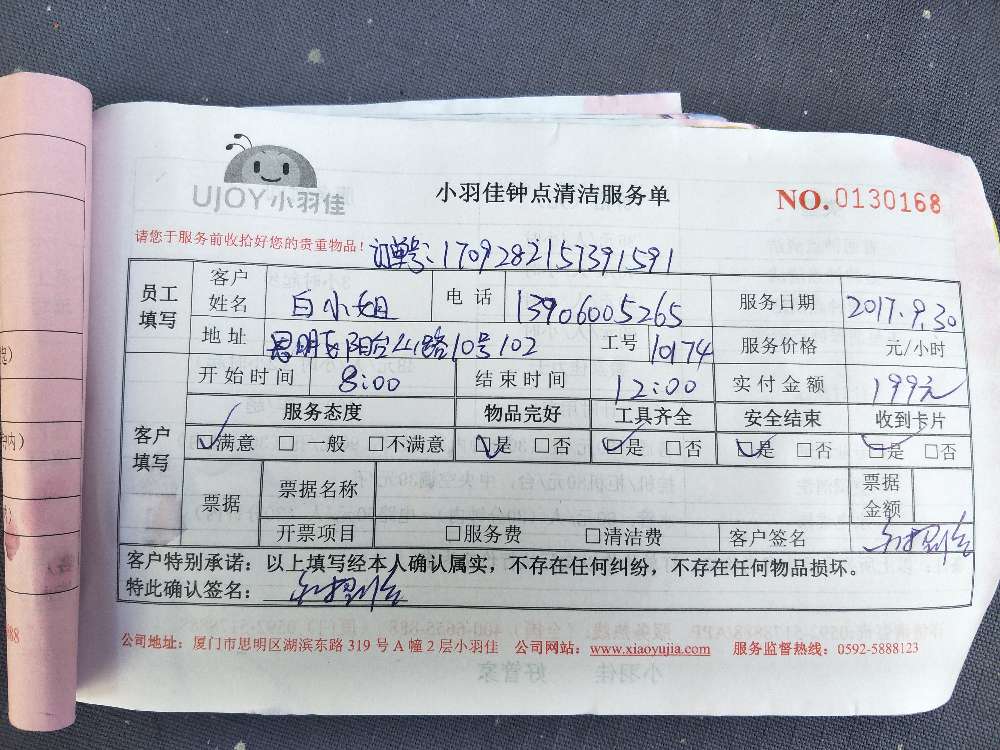 UJOY小羽佳
小羽佳钟点清洁服务单
NO.0130168
请您于服务前收拾好您的贵重物品！
订单号：1709282157391591
员工填写 客户姓名 白小姐 电话 13906005265 服务日期 2017.9.30
地址 思明区阳台山路10号102 工号 10174 服务价格 元/小时
开始时间 8:00 结束时间 12:00 实付金额 199元
客户填写 服务态度 物品完好 工具齐全 安全结束 收到卡片
☑满意 □一般 □不满意 ☑是 □否 ☑是 □否 ☑是 □否 ☑是 □否
票据 票据名称 票据金额
开票项目 □服务费 □清洁费 客户签名
客户特别承诺：以上填写经本人确认属实，不存在任何纠纷，不存在任何物品损坏。
特此确认签名：
公司地址：厦门市思明区湖滨东路 319 号 A 幢 2 层小羽佳 公司网站：www.xiaoyujia.com 服务监督热线：0592-5888123